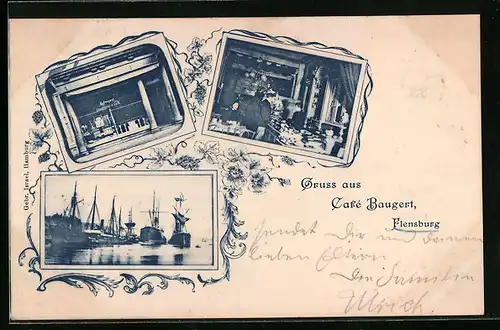 Gruss aus
Café Baugert,
Flensburg
sendet Dir und deinen
lieben Eltern
Die Familie
Ulrich.
Gebr. Israel, Hamburg